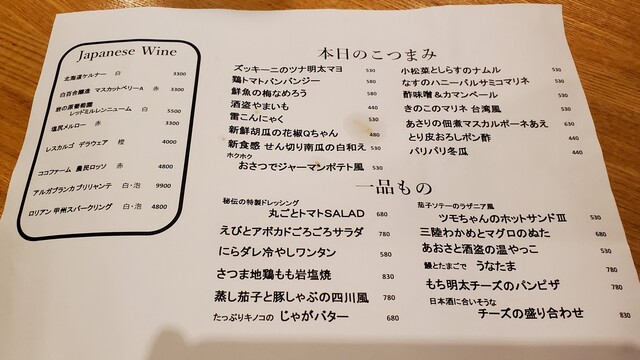 Japanese Wine
北海道ケルナー 白 3300
白百合醸造 マスカットベリーA 赤 3300
岩の原葡萄園
レッドミルレンニューム 白 5500
塩尻メルロー 赤 3300
レスカルゴ デラウェア 橙 4000
ココファーム 農民ロッソ 赤 4800
アルガブランカ ブリリャンテ 白・泡 9900
ロリアン 甲州スパークリング 白・泡 4800
本日のこつまみ
ズッキーニのツナ明太マヨ 530
鶏トマトバンバンジー 580
鮮魚の梅なめろう 580
酒盗やまいも 440
雷こんにゃく 530
新鮮胡瓜の花椒Qちゃん 480
新食感 せん切り南瓜の白和え 530
ホクホク
おさつでジャーマンポテト風 530
小松菜としらすのナムル 530
なすのハニーバルサミコマリネ 530
酢味噌&カマンベール 530
きのこのマリネ 台湾風 530
あさりの佃煮マスカルポーネあえ 630
とり皮おろしポン酢 440
パリパリ冬瓜 440
一品もの
秘伝の特製ドレッシング
丸ごとトマトSALAD 680
えびとアボカドごろごろサラダ 780
にらダレ冷やしワンタン 580
さつま地鶏もも岩塩焼 830
蒸し茄子と豚しゃぶの四川風 780
たっぷりキノコの じゃがバター 680
茄子ソテーのラザニア風
ツモちゃんのホットサンドⅢ 530
三陸わかめとマグロのぬた 680
あおさと酒盗の温やっこ 530
鰻とたまごで うなたま 780
もち明太チーズのパンピザ 780
日本酒に合いそうな
チーズの盛り合わせ 830